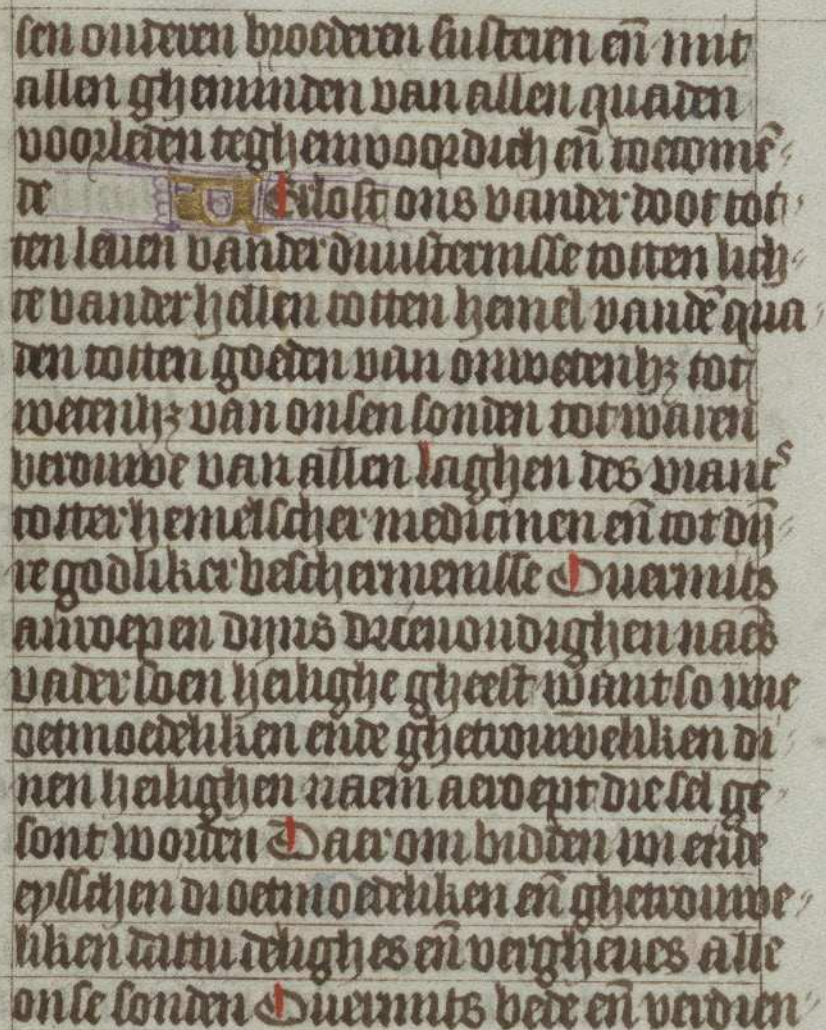 sen ouderen broederen susteren en̄ mit
allen gheminden van allen quaden
voorleden teghenwoordich en̄ toecomē
de Erlost ons vander doot tot
ten leuen vander duusternisse totten lich
te vander hellen totten hemel vandē qua
den totten goeden van onwetenhꝫ tot
wetenhꝫ van onsen sonden tot waren
berouwe van allen laghen des viants
totter hemelscher medicinen en̄ tot dij
re godliker beschermenisse Ouermits
anroepen dijns drieuoudighen naēs
vader soen heilighe gheest want so wie
oetmoedeliken ende ghetrouweliken di
nen heilighen naem aenroept die sel ge
sont worden Daer om bidden wi ende
eysschen di oetmoedeliken en̄ ghetrouwe
liken dattu delighes en̄ vergheues alle
onse sonden Ouermits bede en̄ verdien